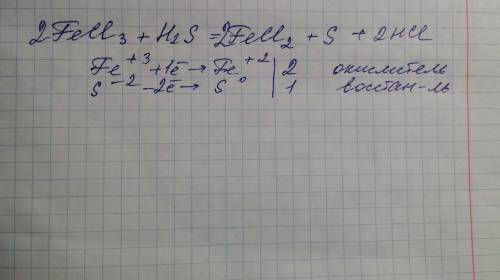 2FeCl₃ + H₂S = 2FeCl₂ + S + 2HCl
Fe⁺³ +1ē → Fe⁺² | 2 окислитель
S⁻² -2ē → S⁰ | 1 востан-ль